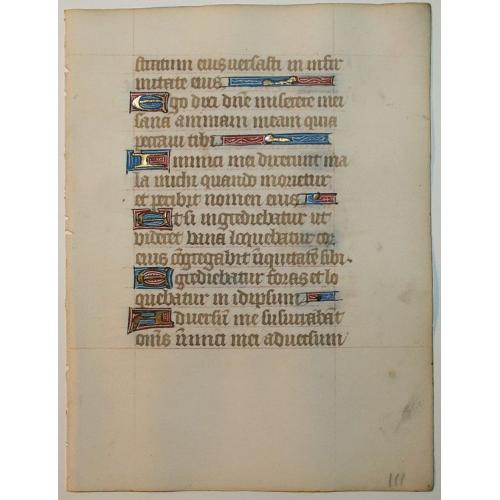 stratum eius versasti in infir
mitate eius
Ego dixi dñe miserere mei
sana animam meam quia
peccavi tibi
Inimici mei dixerunt ma
la michi quando morietur
et peribit nomen eius
Et si ingrediebatur ut
videret vana loquebatur cor
eius cõgregabit iniquitatẽ sibi.
Egrediebatur foras et lo
quebatur in idipsum
Adversũ me susurrabãt
om̃s inimici mei adversum